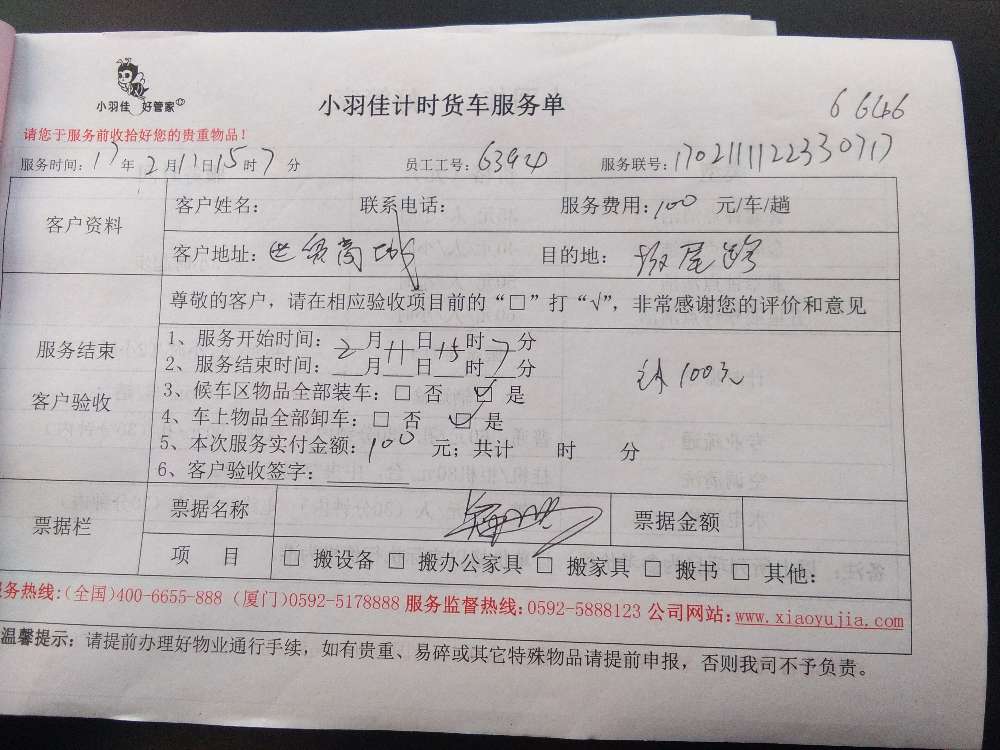 小羽佳 好管家
小羽佳计时货车服务单
请您于服务前收拾好您的贵重物品！
服务时间：17年2月11日15时7分 员工工号：6394 服务联号：1702111122330717
客户资料
客户姓名： 联系电话： 服务费用：100 元/车/趟
客户地址：世贸商城 目的地：坂尾路
尊敬的客户，请在相应验收项目前的“□”打“√”，非常感谢您的评价和意见
服务结束
客户验收
1、服务开始时间：2月11日15时7分
2、服务结束时间：___月___日___时___分
3、候车区物品全部装车：□ 否 ☑ 是
100元
4、车上物品全部卸车：□ 否 ☑ 是
5、本次服务实付金额：100 元；共计 时 分
6、客户验收签字：
票据栏
票据名称 票据金额
项 目 □ 搬设备 □ 搬办公家具 □ 搬家具 □ 搬书 □ 其他：
务热线：(全国)400-6655-888 (厦门)0592-5178888 服务监督热线：0592-5888123 公司网站：www.xiaoyujia.com
温馨提示：请提前办理好物业通行手续，如有贵重、易碎或其它特殊物品请提前申报，否则我司不予负责。